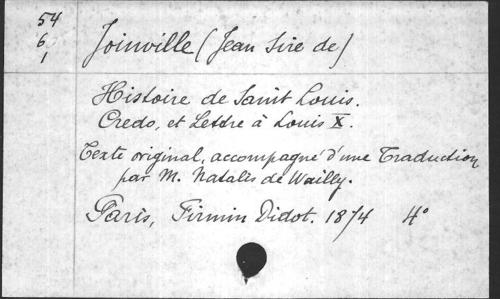 54
6
1
Joinville (Jean Sire de)
Histoire de Saint Louis.
Credo, et Lettre à Louis X.
Texte original, accompagné d'une Traduction
par M. Natalis de Wailly.
Paris, Firmin Didot. 1874 4°